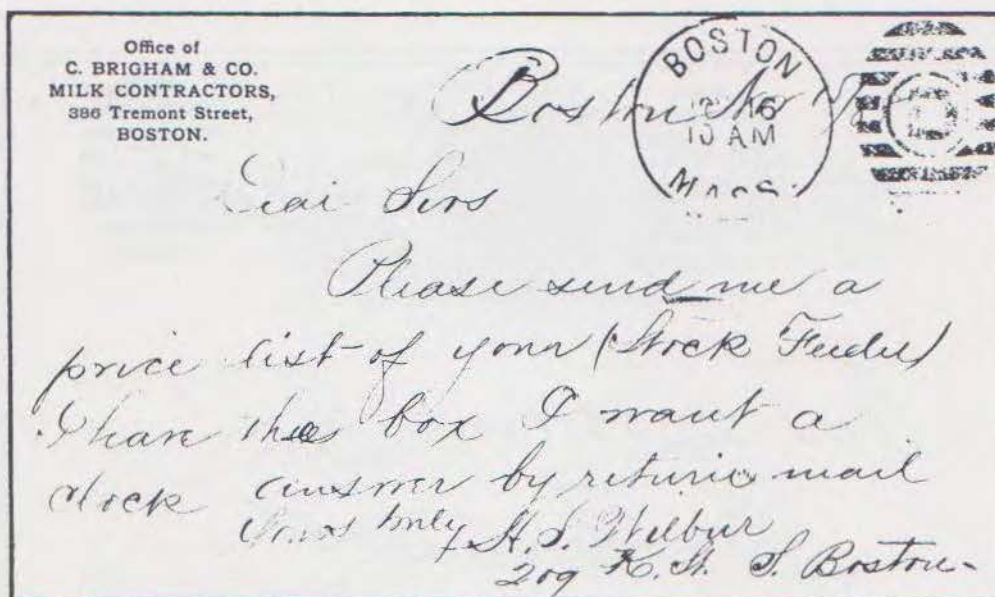 Office of
C. BRIGHAM & CO.
MILK CONTRACTORS,
386 Tremont Street,
BOSTON.
BOSTON
10 AM
MASS.
Boston
Dear Sirs
Please send me a
price list of your (Stock Feeder)
I have the box I want a
clock answer by return mail
Yours truly
H. S. Wilbur
209 K. St. S. Boston.